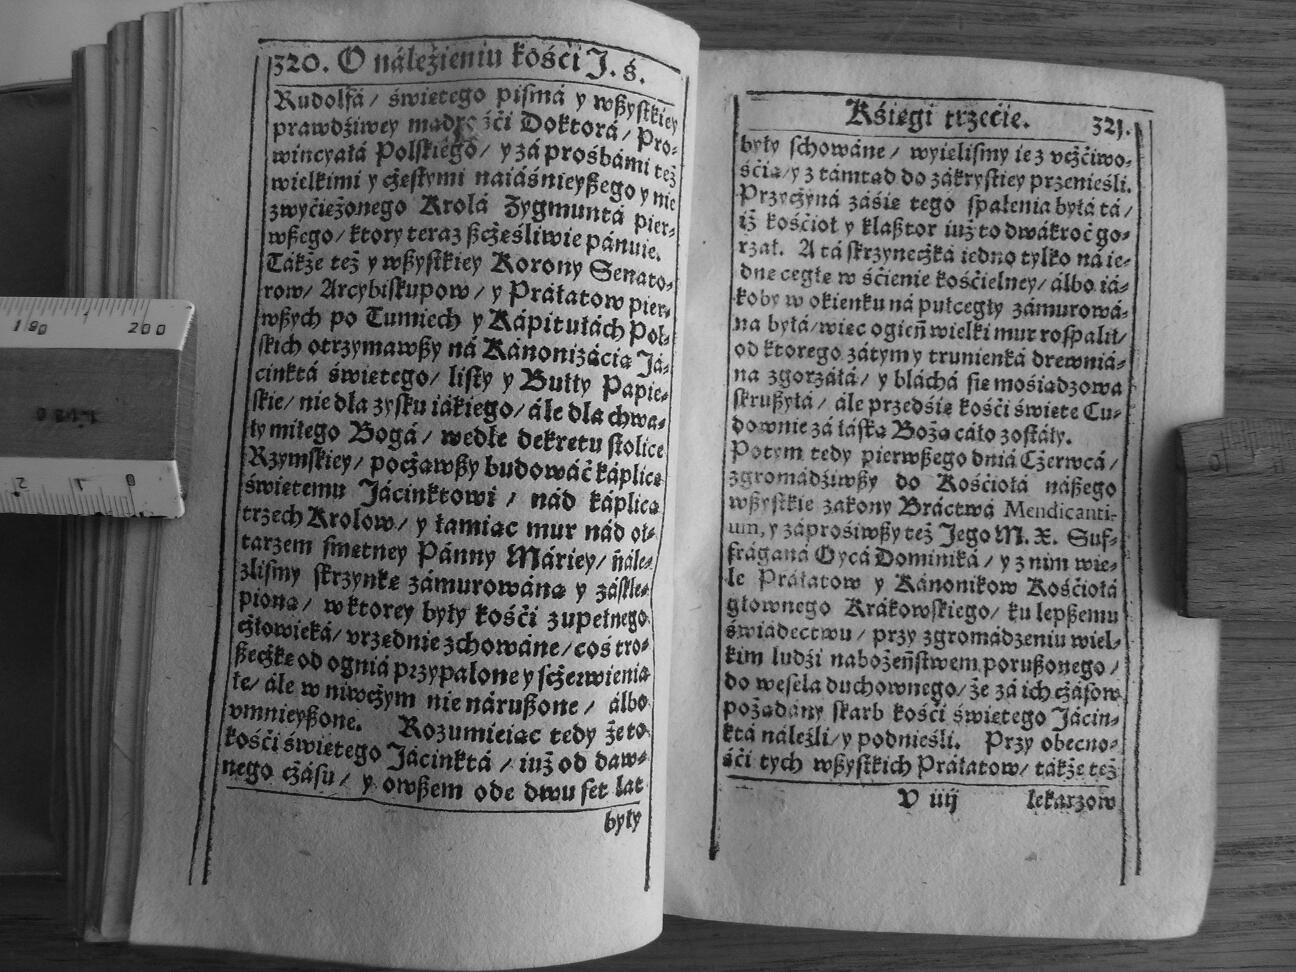 320. O náleźieniu kośći J. ś.
Rudolfá/ świetego pismá y wßystkiey
prawdźiwey mądrośći Doktorá/ Pro-
wincyałá Polskiego/ y zá prośbámi też
wielkimi y cżęstymi naiáśnieyßego y nie
zwyćieżonego Krolá Zygmuntá pier-
wßego/ ktory teraz ßcżęśliwie pánuie.
Tákże też y wßystkiey Korony Senato-
row/ Arcybiskupow/ y Práłatow pier-
wßych po Tumiech y Kápitułách Pol-
skich otrzymawßy ná Kánonizácią Já-
cinktá świetego/ listy y Bułły Papie-
skie/ nie dla zysku iákiego/ ále dla chwa-
ły miłego Bogá/ wedle dekretu stolice
Rzymskiey/ pocżąwßy budowáć káplice
świetemu Jácinktowi/ nád káplicą
trzech Krolow/ y łamiąc mur nád oł-
tarzem smetney Pánny Máriey/ nále-
zlismy skrzynkę zámurowáną y záskle-
pioną/ w ktorey były kośći zupełnego
cżłowieká/ vrzędnie zchowáne/ coś tro-
ßecżkę od ogniá przypalone y scżerwienia
łe/ ále w niwcżym nie nárußone/ álbo
vmnieyßone. Rozumieiąc tedy że to
kośći świetego Jácinktá/ iuż od daw-
nego cżásu/ y owßem ode dwu set lat
były
Kśięgi trzećie. 321.
były schowáne/ wyielismy ie z vcżćiwo-
śćią/ y z támtąd do zákrystiey przenieśli.
Przycżyná záśie tego spalenia byłá tá/
iż kośćioł y klaßtor iuż to dwákroć go-
rzał. A tá skrzynecżká iedno tylko ná ie-
dnę cegłę w śćienie kośćielney/ álbo iá-
koby w okienku ná pułcegły zámurowá-
na byłá/ więc ogień wielki mur rospalił/
od ktorego zátym y trunienká drewniá-
na zgorzáłá/ y bláchá sie mośiądzowa
skrußyłá/ ále przedśię kośći święte Cu-
downie zá łáską Bożą cáło zostáły.
Potym tedy pierwßego dniá Cżerwcá/
zgromádźiwßy do Kośćiołá náßego
wßystkie zakony Bráctwá Mendicanti-
um, y záprośiwßy też Jego M. X. Suf-
frágana Oycá Dominiká/ y z nim wie-
le Práłatow y Kánonikow Kośćiołá
głownego Krákowskiego/ ku lepßemu
świádectwu/ przy zgromádzeniu wiel-
kim ludźi nabożeństwem porußonego/
do wesela duchownego/ że zá ich cżásow
pożądány skarb kośći świętego Jácin-
ktá náleźli/ y podnieśli. Przy obecno-
śći tych wßystkich Práłatow/ tákże też
V iiij lekarzow